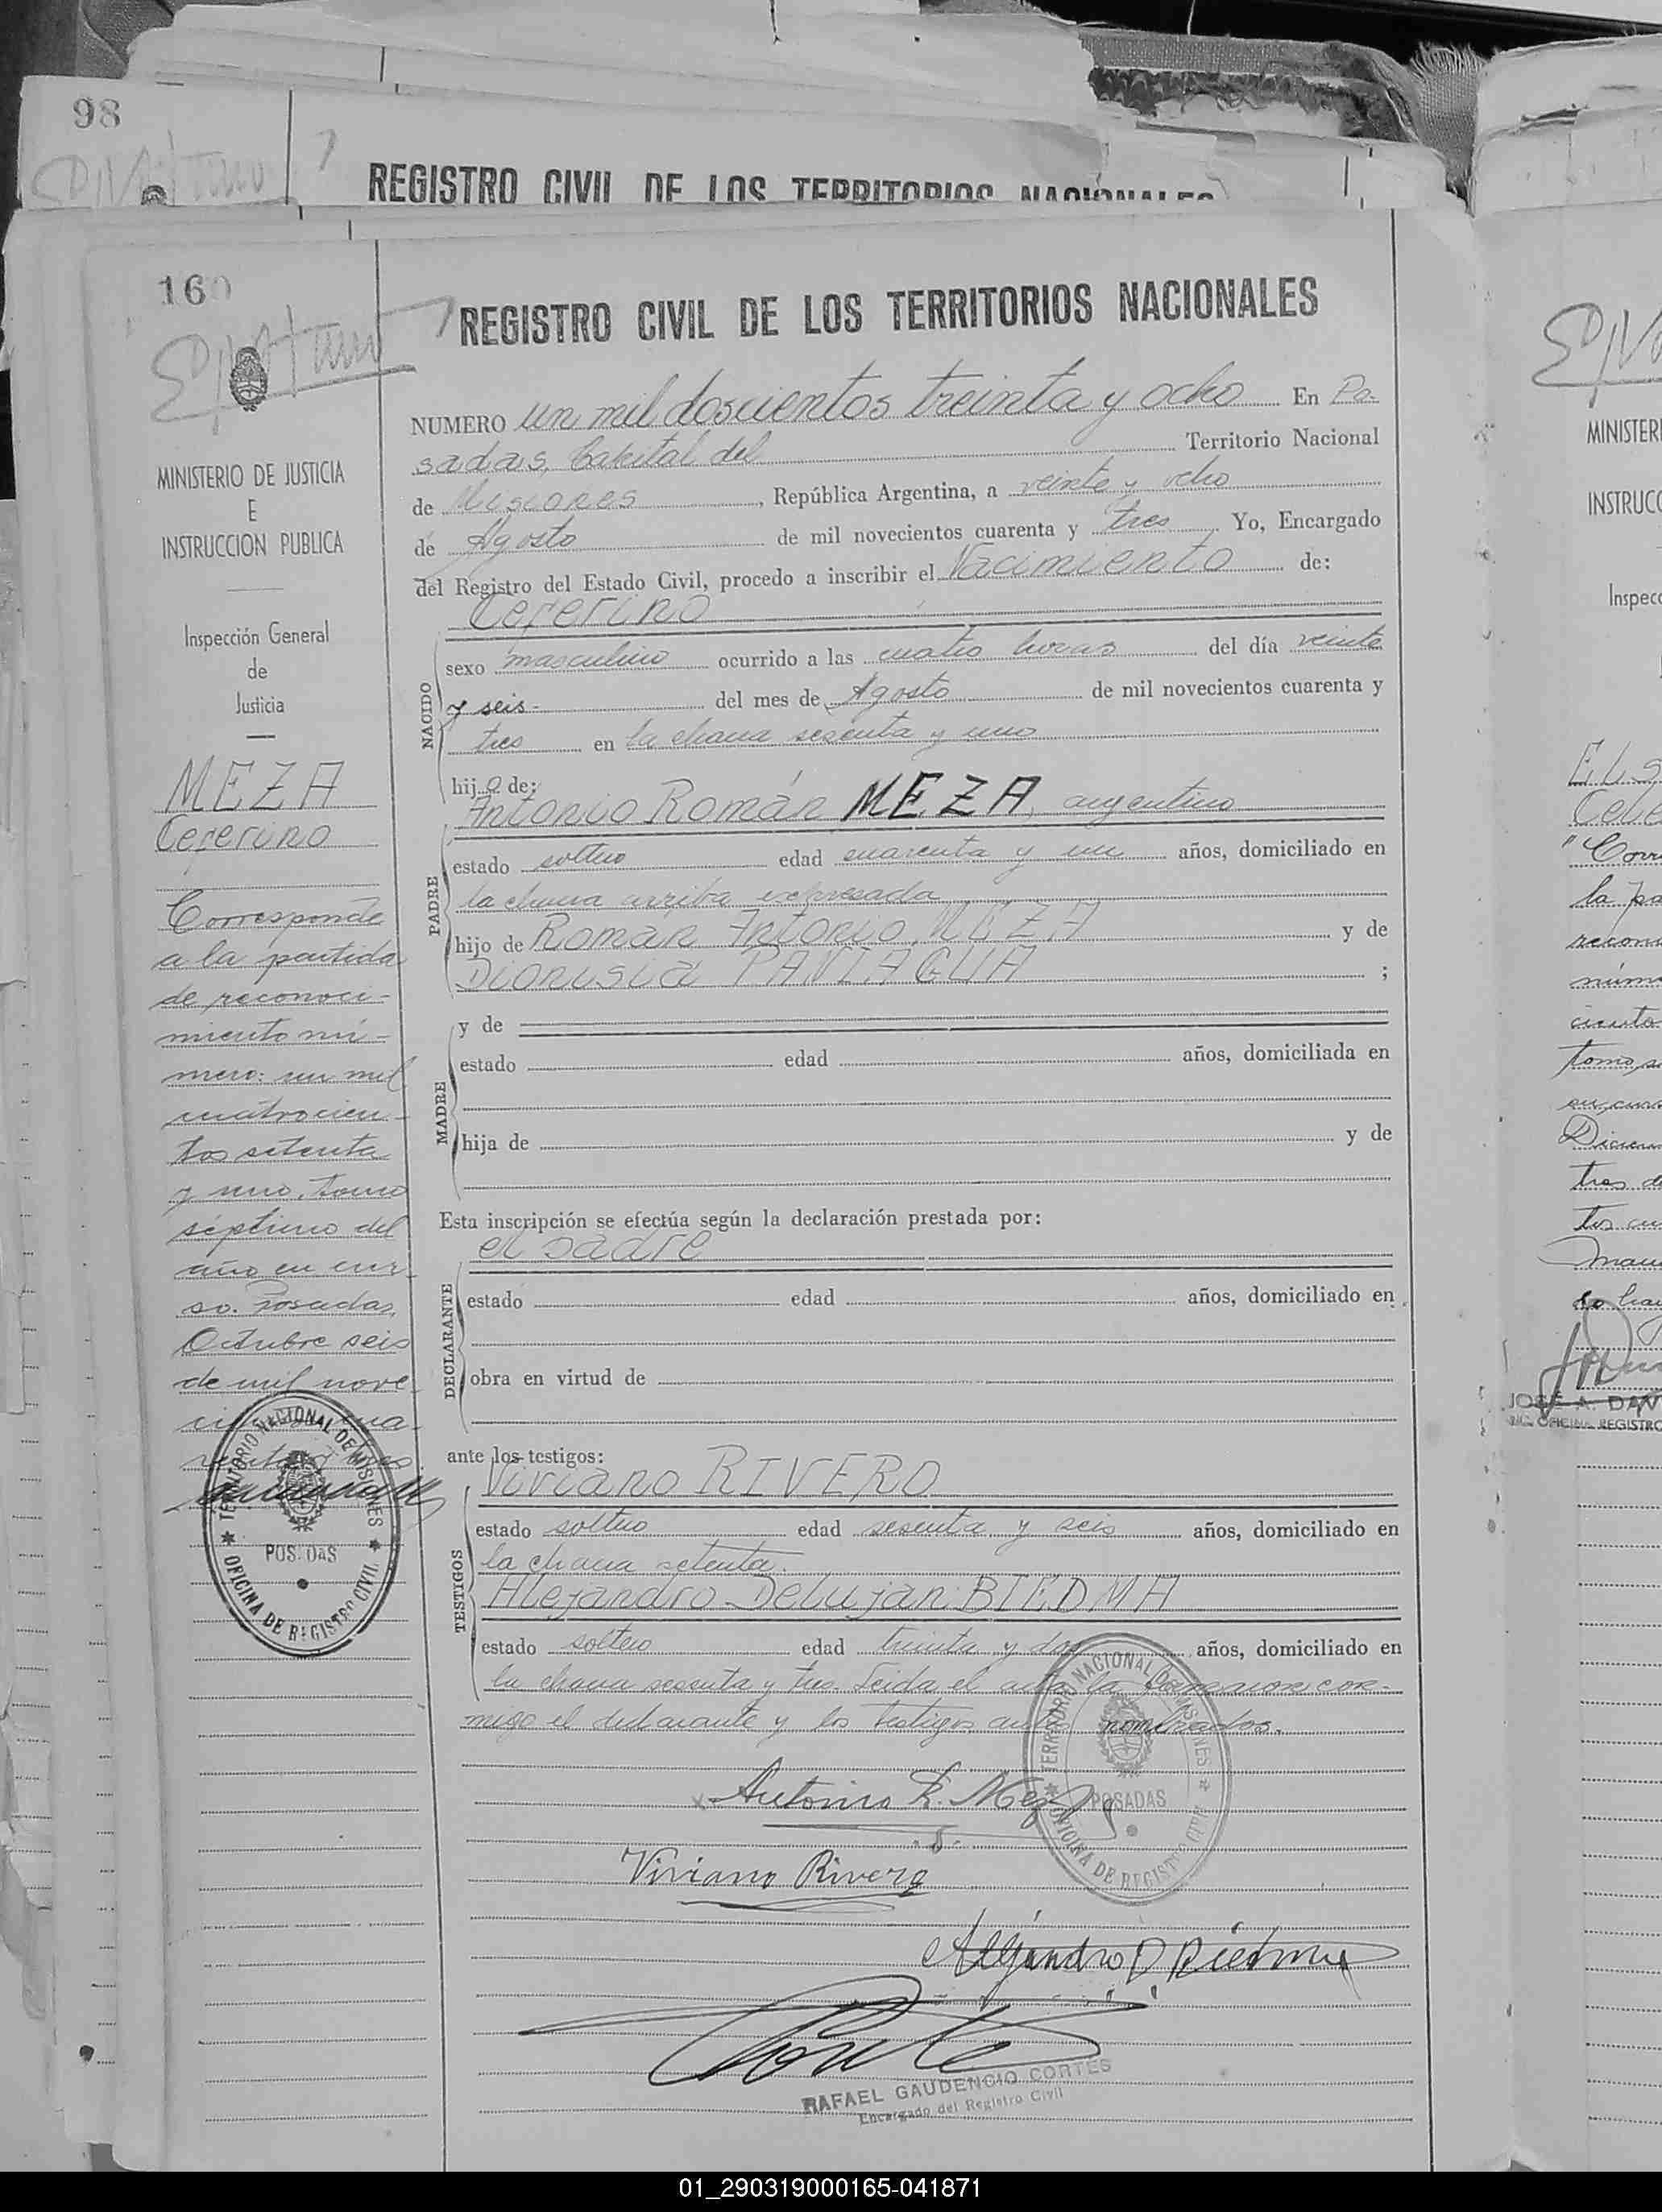 98
REGISTRO CIVIL DE LOS TERRITORIOS NACIONALES
160
REGISTRO CIVIL DE LOS TERRITORIOS NACIONALES
NUMERO un mil doscientos treinta y ocho En Po-
sadas, Capital del Territorio Nacional
de Misiones, República Argentina, a veinte y ocho
de Agosto de mil novecientos cuarenta y tres. Yo, Encargado
del Registro del Estado Civil, procedo a inscribir el Nacimiento de:
Ceferino
NACIDO
sexo masculino ocurrido a las cuatro horas del día veinte
y seis- del mes de Agosto de mil novecientos cuarenta y
tres en la chacra sesenta y uno
hijo de:
Antonio Román MEZA, argentino
PADRE
estado soltero edad cuarenta y un años, domiciliado en
la chacra arriba expresada
hijo de Roman Antonio MEZA y de
Dionisia PANIAGUA ;
MADRE
y de
estado edad años, domiciliada en
hija de y de
Esta inscripción se efectúa según la declaración prestada por:
el padre
DECLARANTE
estado edad años, domiciliado en
obra en virtud de
ante los testigos:
TESTIGOS
Viviano RIVERO
estado soltero edad sesenta y seis años, domiciliado en
la chacra setenta.
Alejandro Delujan BIEDMA
estado soltero edad treinta y dos años, domiciliado en
la chacra sesenta y tres. Leida el acta la firmaron con-
migo el declarante y los testigos antes nombrados.
Antonio R. Meza
Viviano Rivero
Alejandro D. Biedma
RAFAEL GAUDENCIO CORTES
Encargado del Registro Civil
TERRITORIO NACIONAL DE MISIONES
POSADAS
OFICINA DE REGISTRO CIVIL
MINISTERIO DE JUSTICIA
E
INSTRUCCION PUBLICA
Inspección General
de
Justicia
MEZA
Ceferino
Corresponde
a la partida
de reconoci-
miento nú-
mero: un mil
cuatrocien-
tos setenta
y uno, tomo
séptimo del
año en cur-
so. Posadas,
Octubre seis
de mil nove-
cientos cua-
renta y tres
TERRITORIO NACIONAL DE MISIONES
POSADAS
OFICINA DE REGISTRO CIVIL
MINISTER
INSTRUCC
Inspecc
"Corr
la pa
recon
núme
Diciem
JOSE A. DAN
OFICINA REGISTRO
01_290319000165-041871